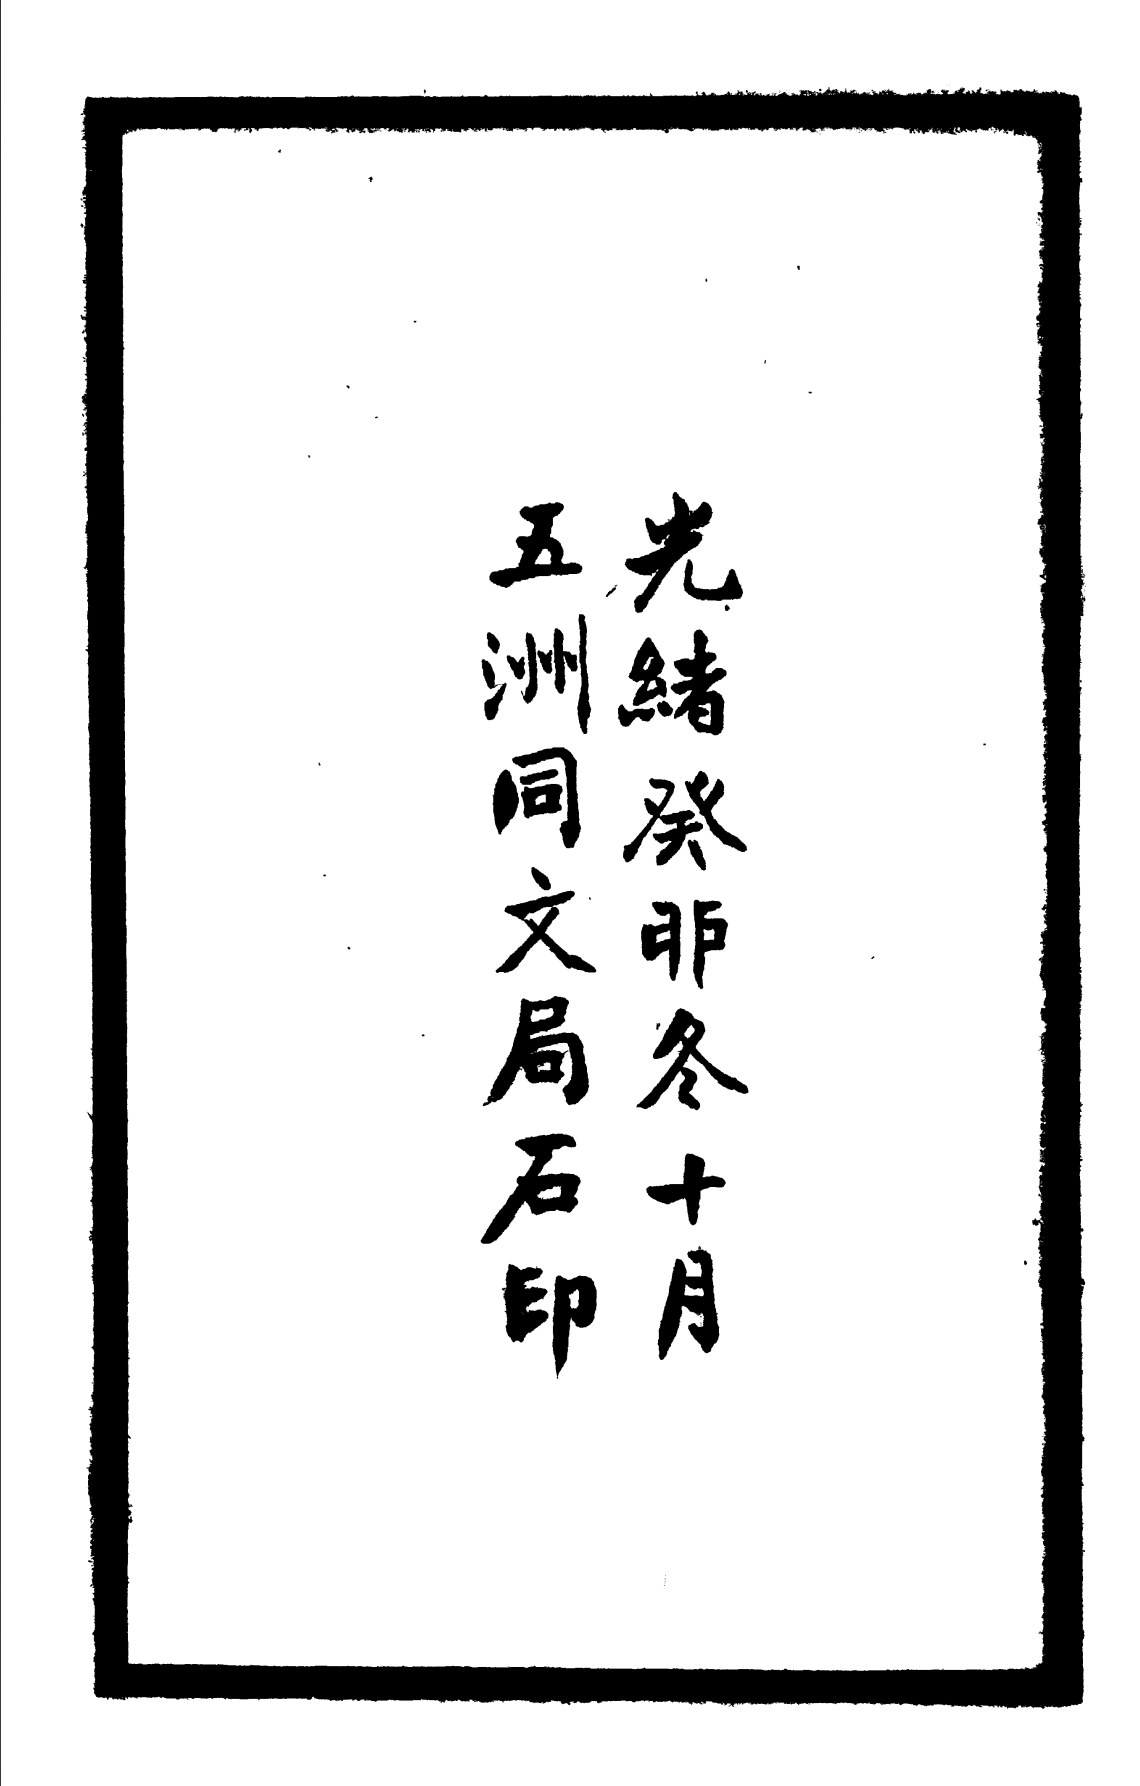 光緒癸卯冬十月
五洲同文局石印